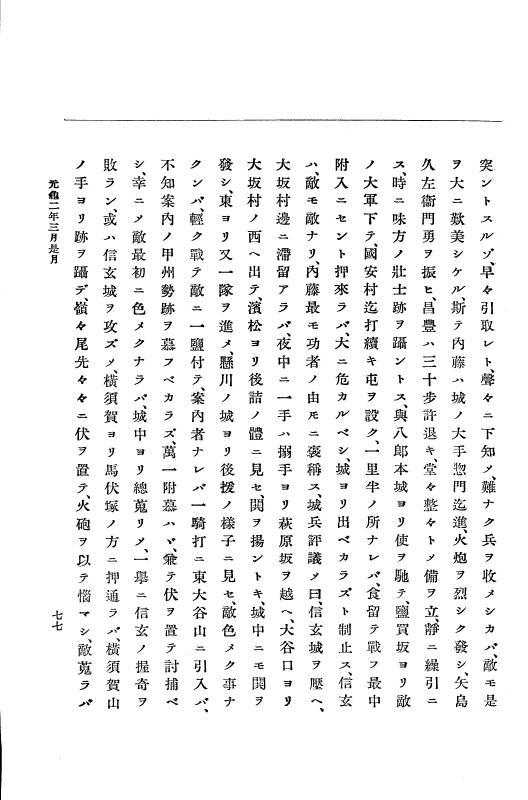 突ントスルゾ、早々引取レト、聲々ニ下知メ、難ナク兵ヲ收メシカバ、敵モ是
ヲ大ニ歎美シケル、斯テ內藤ハ城ノ大手惣門迄進、火炮ヲ烈シク發シ、矢島
久左衞門勇ヲ振ヒ、昌豊ハ三十步許退キ、堂々整々トメ備ヲ立、靜ニ繰引ニ
ス、時ニ味方ノ壯士跡ヲ躡ントス、與八郞本城ヨリ使ヲ馳テ、鹽買坂ヨリ敵
ノ大軍下テ、國安村迄打續キ屯ヲ設ク、一里半ノ所ナレバ、食留テ戰フ最中
附入ニセント押來ラバ、大ニ危カルベシ、城ヨリ出ベカラズト制止ス、信玄
ハ、敵モ敵ナリ、內藤最モ功者ノ由𪜈ニ褒稱ス、城兵評議メ曰、信玄城ヲ壓ヘ、
大坂村邊ニ滯留アラバ、夜中ニ一手ハ搦手ヨリ萩原坂ヲ越ヘ、大谷口ヨリ
大坂村ノ西ヘ出テ、濱松ヨリ後詰ノ體ニ見セ、鬨ヲ揚ントキ、城中ニモ鬨ヲ
發シ、東ヨリ又一隊ヲ進メ、懸川ノ城ヨリ後援ノ樣子ニ見セ、敵色メク事ナ
クンバ、輕ク戰テ敵ニ一鹽付テ、案內者ナレバ一騎打ニ東大谷山ニ引入バ、
不知案內ノ甲州勢跡ヲ慕フベカラズ、萬一附慕ハヾ、兼テ伏ヲ置テ討捕ベ
シ、幸ニメ敵最初ニ色メクナラバ、城中ヨリ總蒐リメ、一擧ニ信玄ノ握奇ヲ
敗ラン、或ハ信玄城ヲ攻ズメ、橫須賀ヨリ馬伏塚ノ方ニ押通ラバ、橫須賀山
ノ手ヨリ跡ヲ躡デ、嶺々尾先々々ニ伏ヲ置テ、火砲ヲ以テ惱マシ、敵蒐ラバ
元龜二年三月是月
七七